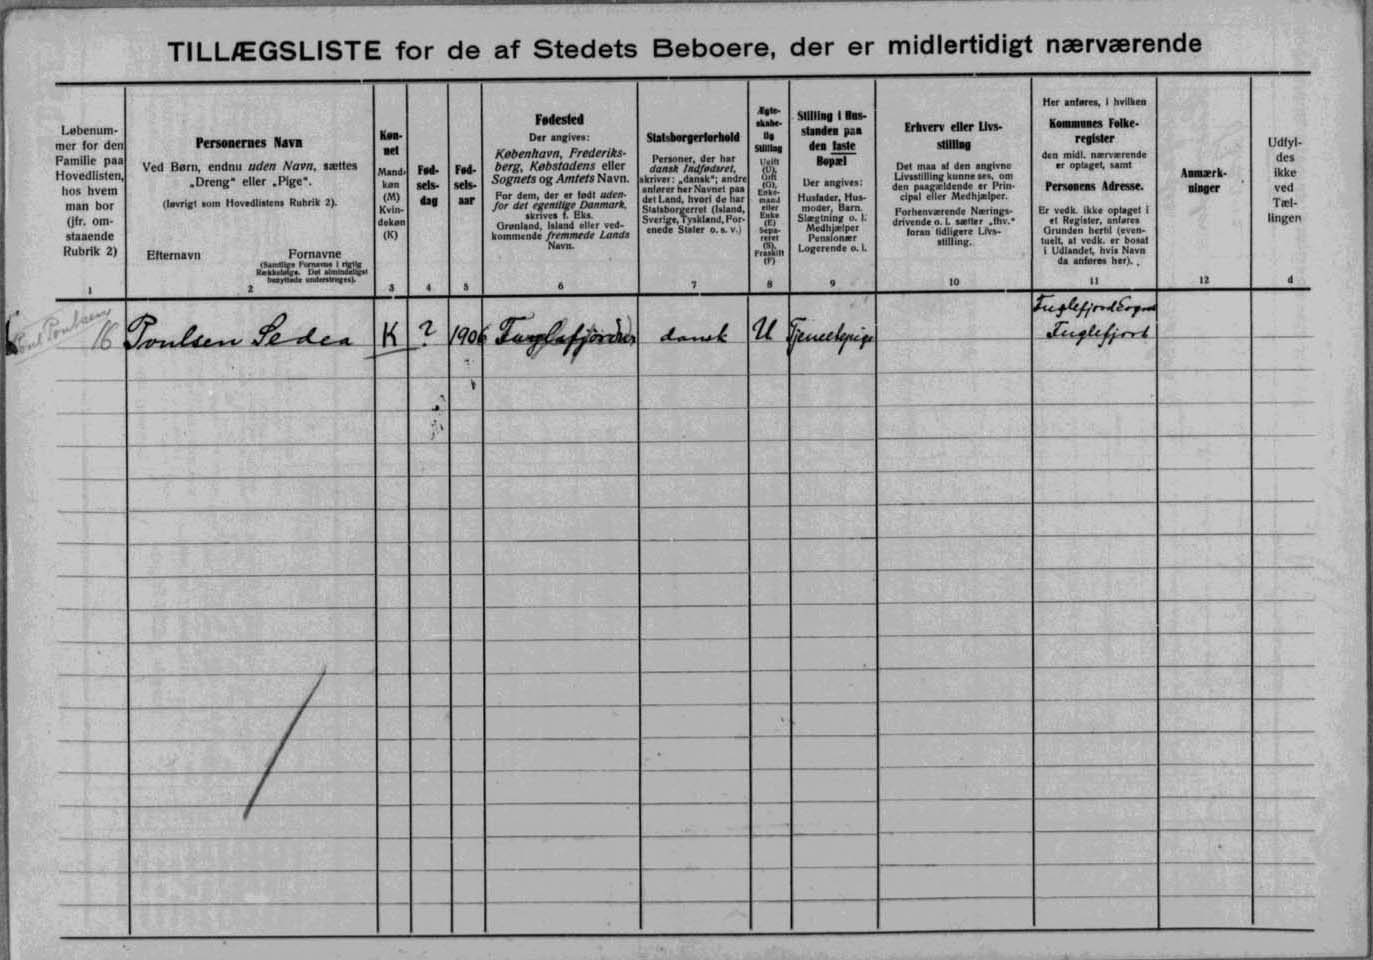 TILLÆGSLISTE for de af Stedets Beboere, der er midlertidigt nærværende
Løbenum-
mer for den
Familie paa
Hovedlisten,
hos hvem
man bor
(jfr. om-
staaende
Rubrik 2)
1
Personernes Navn
Ved Børn, endnu uden Navn, sættes
„Dreng“ eller „Pige“.
(Iøvrigt som Hovedlistens Rubrik 2).
Efternavn Fornavne
(Samtlige Fornavne i rigtig
Rækkefølge. Det almindeligst
benyttede understreges).
2
Køn-
net
Mand-
køn
(M)
Kvin-
dekøn
(K)
3
Fød-
sels-
dag
4
Fød-
sels-
aar
5
Fødested
Der angives:
København, Frederiks-
berg, Købstadens eller
Sognets og Amtets Navn.
For dem, der er født uden-
for det egentlige Danmark,
skrives f. Eks.
Grønland, Island eller ved-
kommende fremmede Lands
Navn.
6
Statsborgerforhold
Personer, der har
dansk Indfødsret,
skriver: „dansk“; andre
anfører her Navnet paa
det Land, hvori de har
Statsborgerret (Island,
Sverige, Tyskland, For-
enede Stater o. s. v.)
7
Ægte-
skabe-
lig
Stilling
Ugift
(U),
Gift
(G),
Enke-
mand
eller
Enke
(E)
Sepa-
reret
(S),
Fraskilt
(F)
8
Stilling i Hus-
standen paa
den faste
Bopæl
Der angives:
Husfader, Hus-
moder, Barn.
Slægtning o. l.
Medhjælper
Pensionær
Logerende o. l.
9
Erhverv eller Livs-
stilling
Det maa af den angivne
Livsstilling kunne ses, om
den paagældende er Prin-
cipal eller Medhjælper.
Forhenværende Nærings-
drivende o. l. sætter „fhv.“
foran tidligere Livs-
stilling.
10
Her anføres, i hvilken
Kommunes Folke-
register
den midl. nærværende
er optaget, samt
Personens Adresse.
Er vedk. ikke optaget i
et Register, anføres
Grunden hertil (even-
tuelt, at vedk. er bosat
i Udlandet, hvis Navn
da anføres her).
11
Anmærk-
ninger
12
Udfyl-
des
ikke
ved
Tæl-
lingen
d
Poul Poulsen
Fuglefjord Sogn
16 Poulsen Sedea K ? 1906 dansk U Tjenestepige Fuglefjord